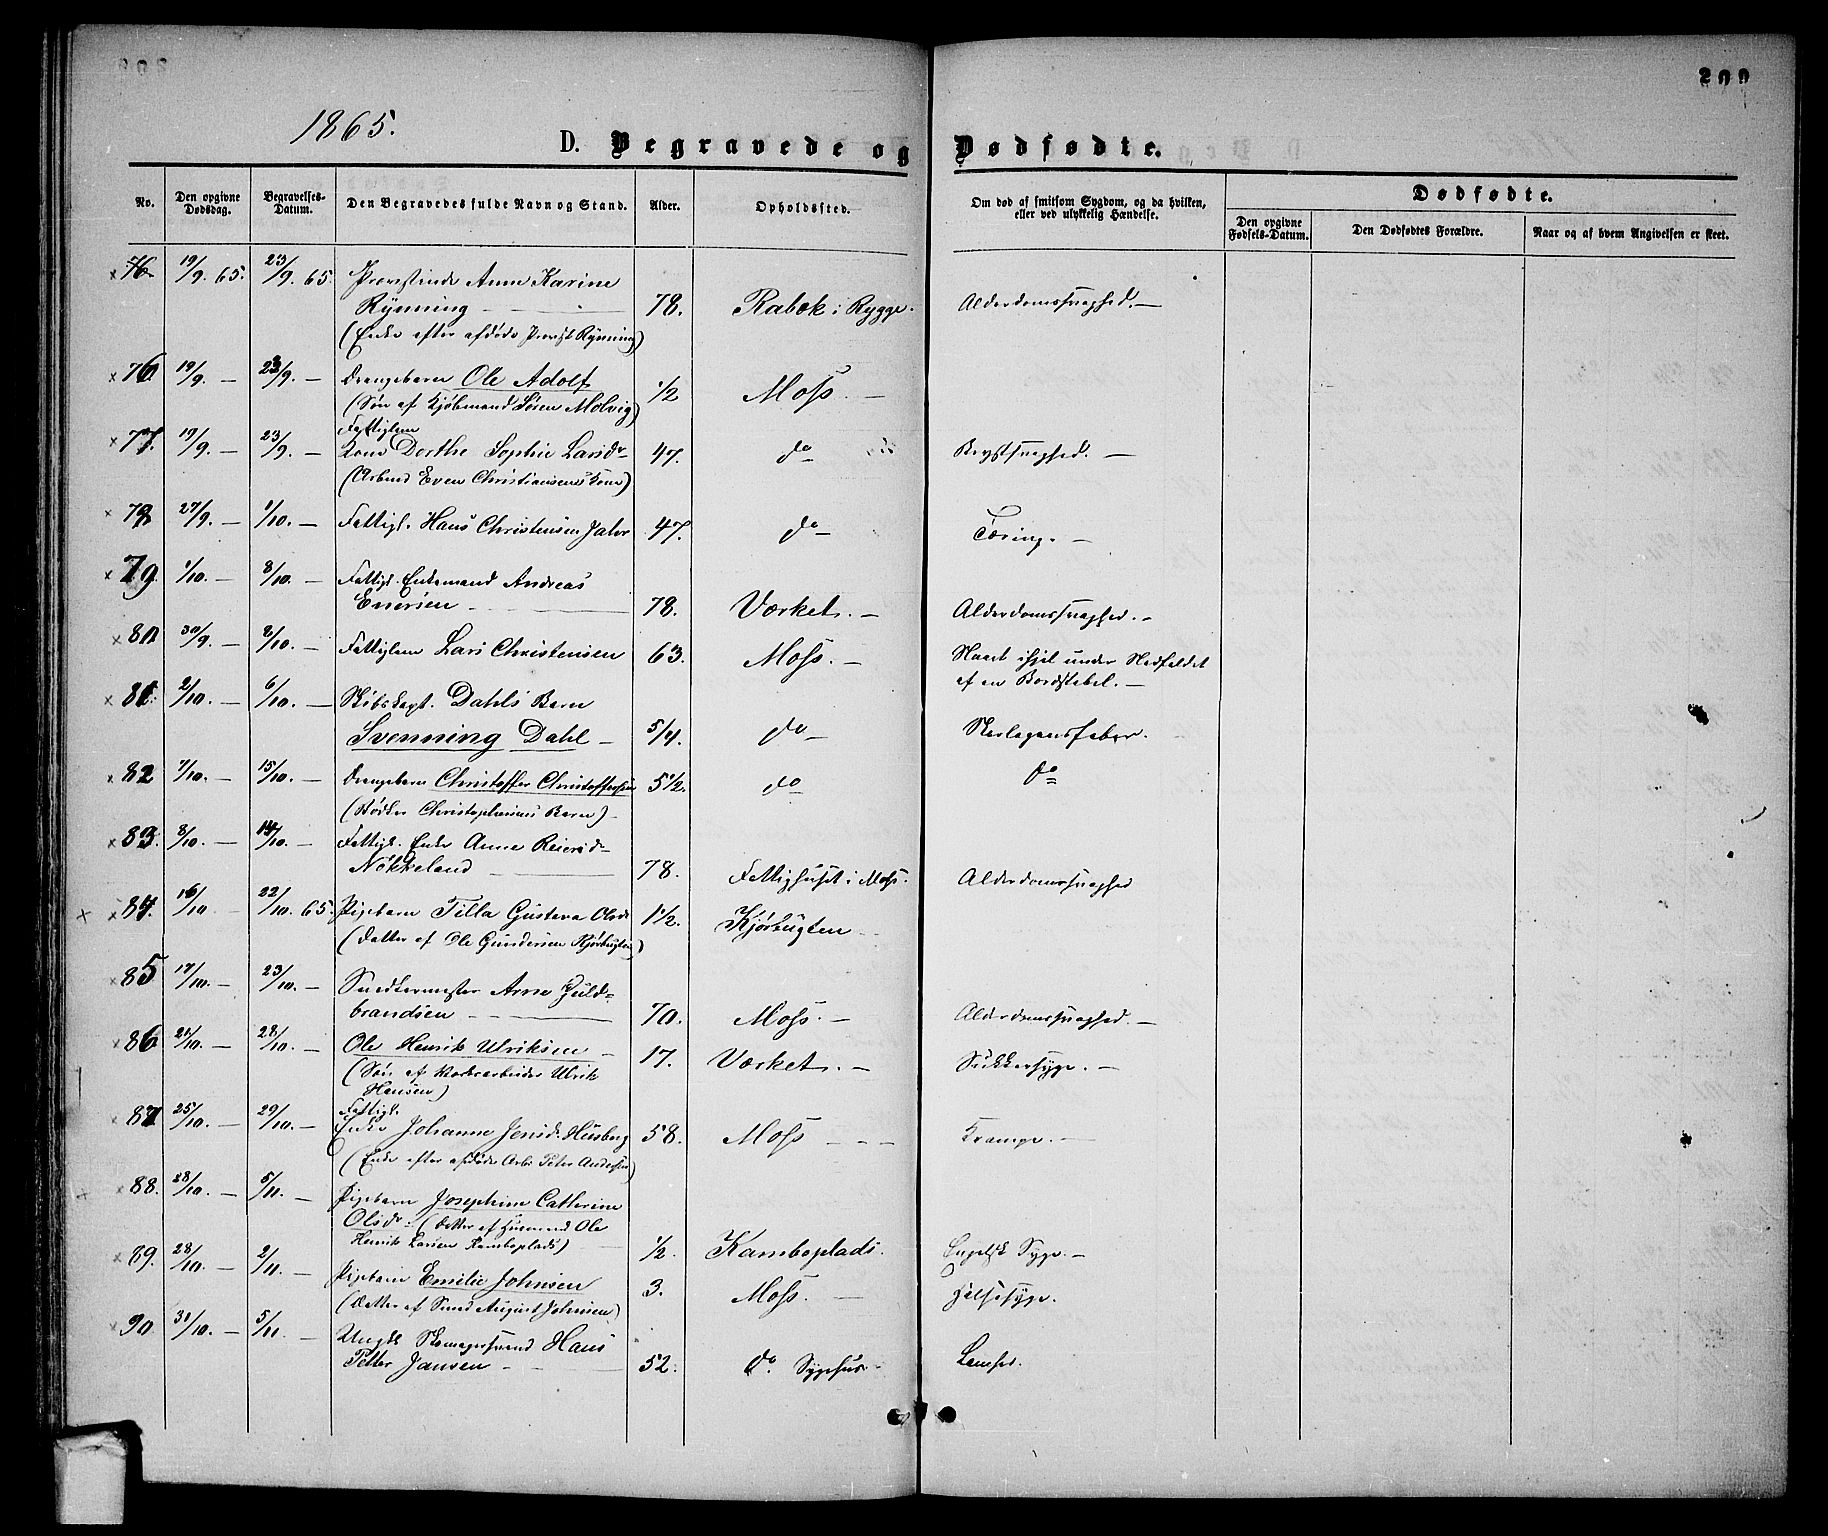 209
1865.
D. Begravede og Dødfødte.
No.
Den opgivne Dødsdag.
Begravelses-Datum.
Den Begravedes fulde Navn og Stand.
Alder.
Opholdssted.
Om død af smitsom Sygdom, og da hvilken, eller ved ulykkelig Hændelse.
Dødfødte.
Den opgivne Fødsels-Datum.
Den Dødfødtes Forældre.
Naar og af hvem Angivelsen er skeet.
76. 19/9. 65. 23/9. 65. Provstinde Anne Karine
Rÿnning — 78. Rabæk i Rygge. Alderdomssvaghed. —
(Enke efter afdøde Provst Rÿnning)
76. 19/9. — 23/9. — Drengebarn Ole Adolf 1/2 Moss. —
(Søn af Kjøbmand Sören Molvig)
Fattiglem
77. 19/9. — 23/9. — Kone Dorthe Sophie Larsdr 47. do Brystsvaghed. —
(Arbmd Even Christiansens Kone)
78. 27/9. — 1/10. — Fattigl. Hans Christensen 47. do Tæring. —
79. 1/10. — 8/10. — Fattigl. Enkemand Andreas
Enersen — 78. Værket. — Alderdomssvaghed. —
80. 30/9. — 8/10. — Fattiglem Lars Christensen 63. Moss. — Slaaet ihjel under Nedfaldet
af en Bordstabel. —
81. 2/10. — 6/10. — Skibskapt. Dahls Barn
Svenning Dahl — 5/4. do Skarlagensfeber.
82 7/10. — 15/10. — Drengebarn Christoffer Christoffersen 5 1/2. do do
(Bødker Christophersens Barn)
83. 8/10. — 14/10. — Fattigl. Enke Anne Reiersdr
Nökkeland — 78. Fattighuset i Moss. Alderdomssvaghed
84. 16/10 — 22/10. 65. Pigebarn Tilla Gustava Olsdr 1 1/2. Kjørbugten
(Datter af Ole Gundersen Kjørbugten)
85 17/10. — 23/10. — Snedkermester Arne Guld-
brandsen — 70. Moss. — Alderdomssvaghed. —
86. 21/10. — 28/10. — Ole Henrik Ulriksen — 17. Værket. — Sukkersyge. —
(Søn af Værksarbeider Ulrik
Hansen)
Fattigl.
87. 25/10. — 29/10. — Enke Johanne Jensdr Husberg 58. Moss — Krampe. —
(Enke efter afdøde Arb. Peter Andersen)
88. 28/10. — 5/11. — Pigebarn Josephine Cathrine
Olsdr (Datter af Husmand Ole
Henrik Larsen Kamboplads) 1/2. Kamboplads. Engelsk Syge. —
89. 28/10. — 2/11. — Pigebarn Emilie Johnsen 3. Moss. — Halssyge.
(Datter af Smed August Johnsen)
90. 31/10. — 5/11. — Ungkl. Skomagersvend Hans
Petter Jansen — 52. do. Sygehus. Lamhed.